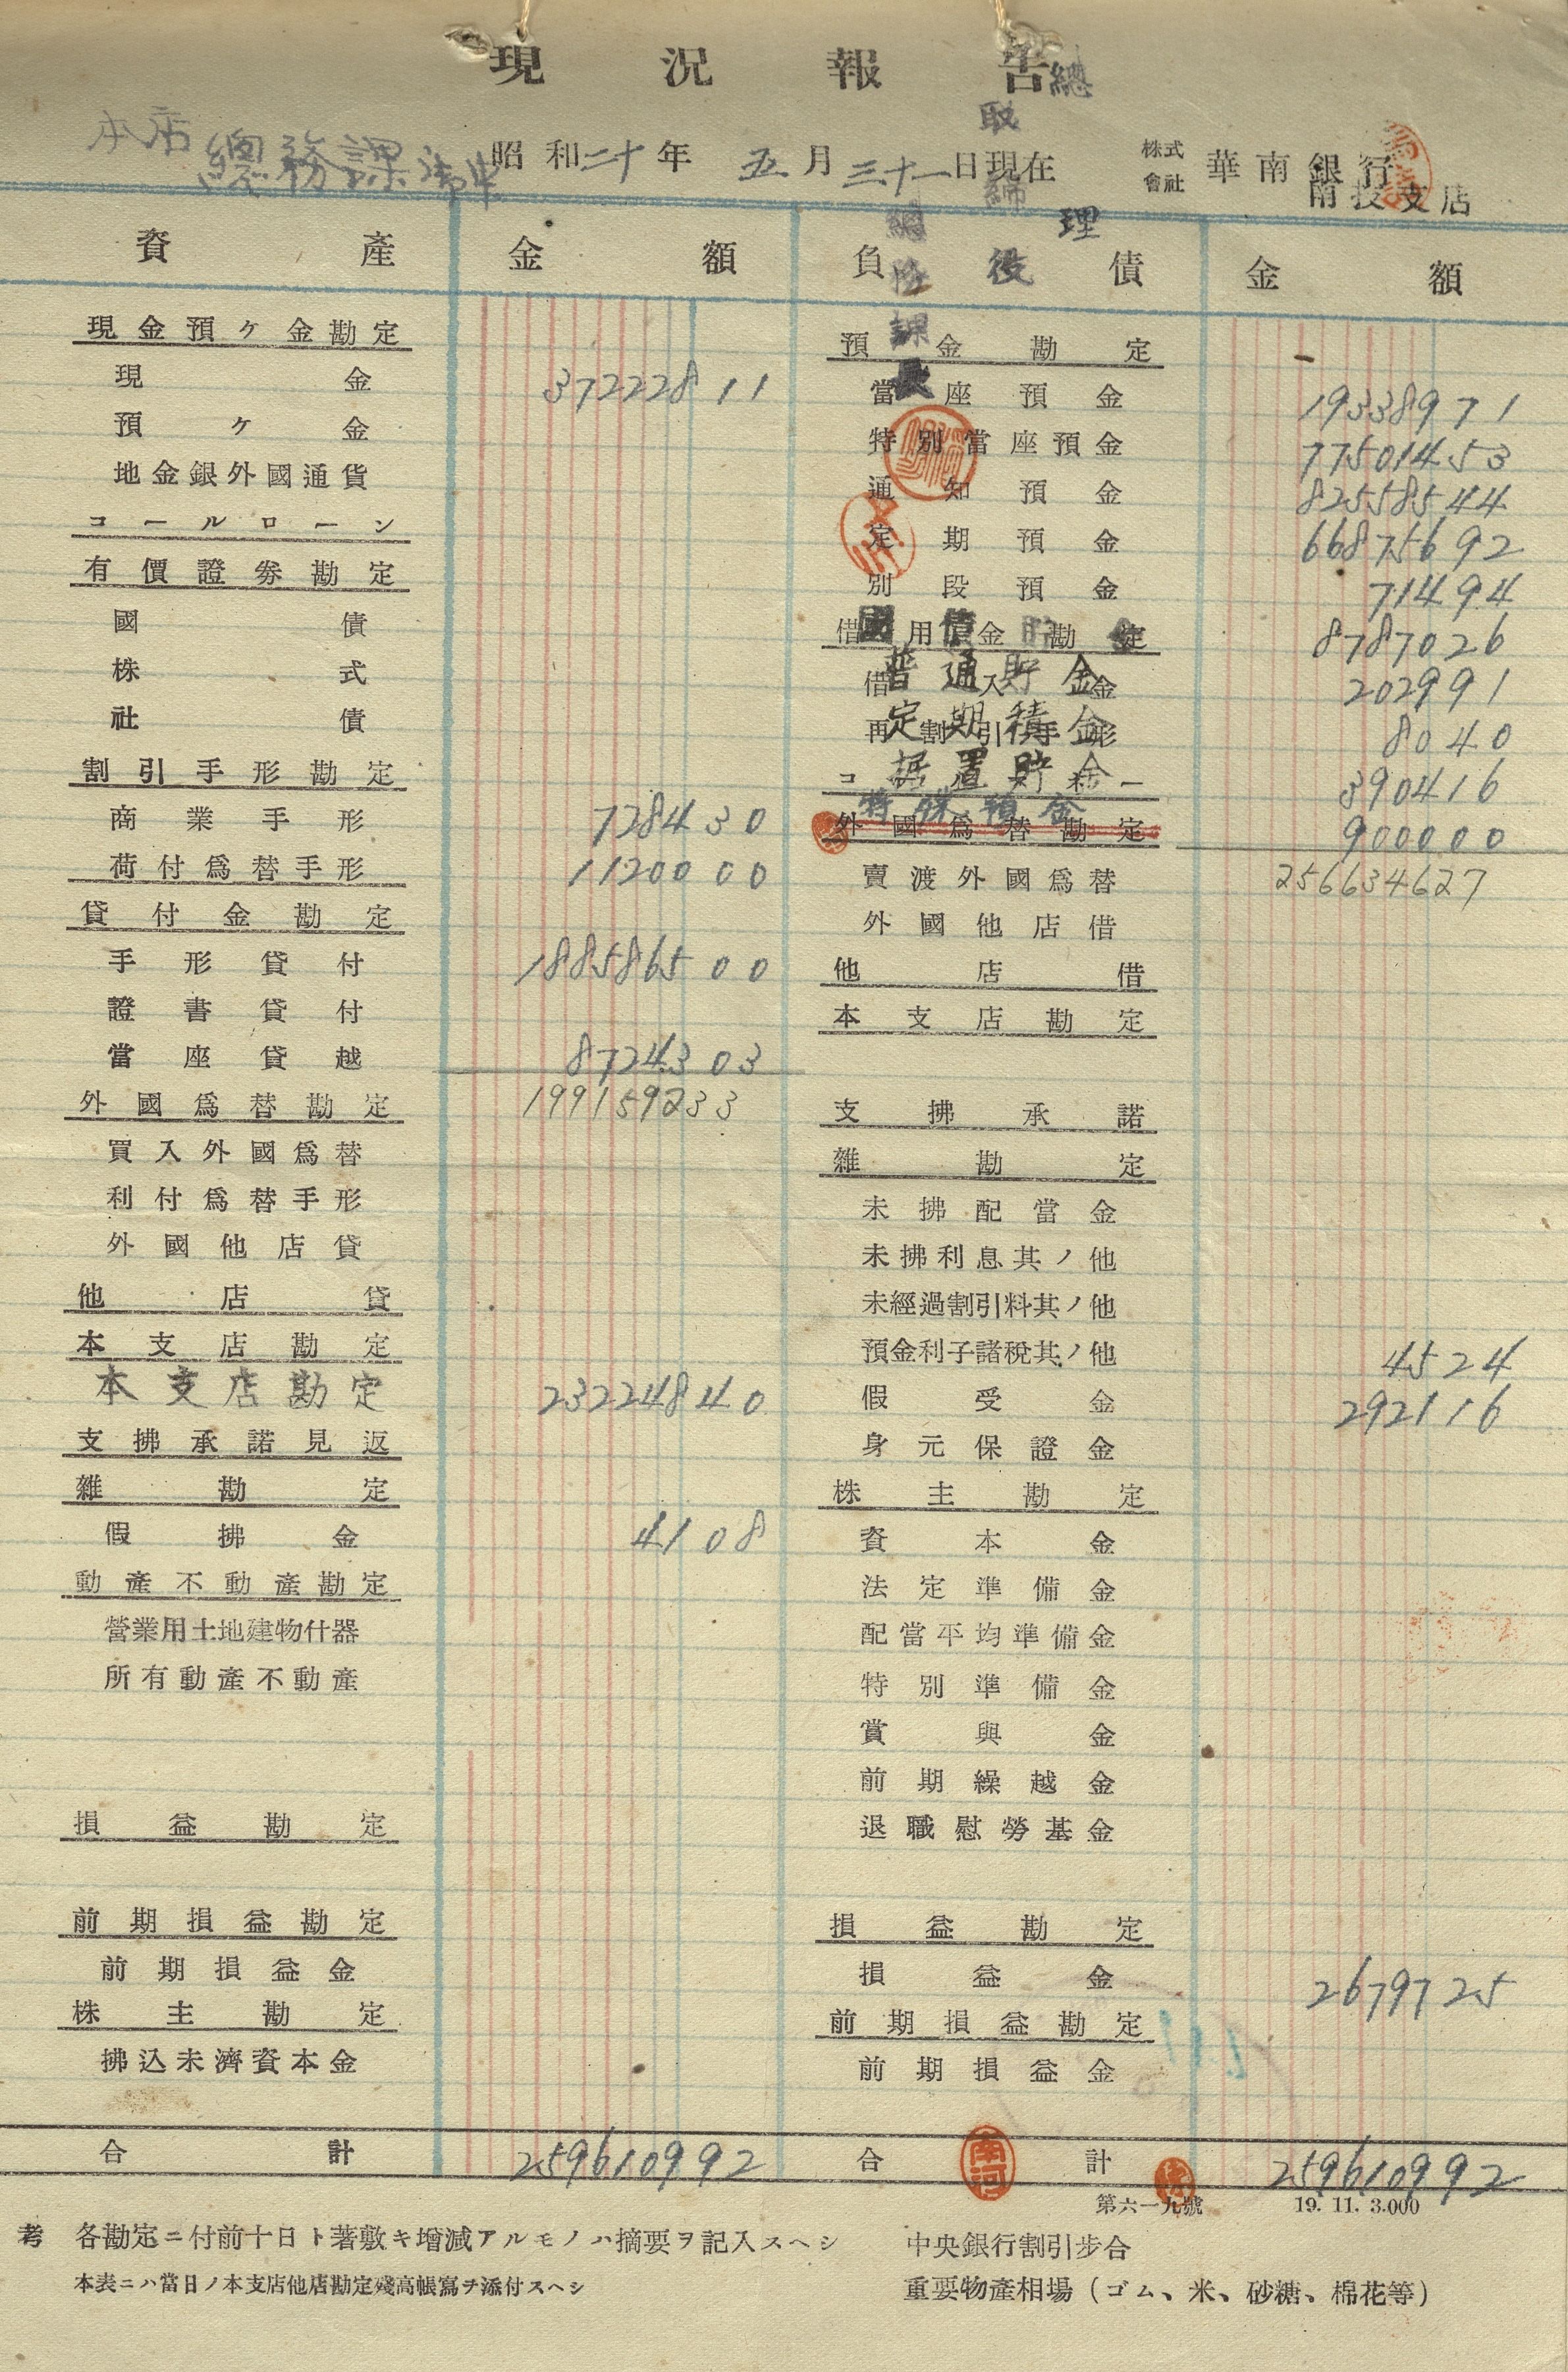 現況報告
本店 總務課 御中
昭和二十年 五月三十一日現在
株式會社 華南銀行
南投支店
總
取締役
理
課長
資產 金額 負債 金額
現金預ケ金勘定
現金 372228 11
預ケ金
地金銀外國通貨
コールローン
有價證券勘定
國債
株式
社債
割引手形勘定
商業手形 7284 30
荷付爲替手形 11200 00
貸付金勘定
手形貸付 1885865 00
證書貸付
當座貸越 87243 03
1991592 33
外國爲替勘定
買入外國爲替
利付爲替手形
外國他店貸
他店貸
本支店勘定
本支店勘定 232248 40
支拂承諾見返
雜勘定
假拂金 41 08
動產不動產勘定
營業用土地建物什器
所有動產不動產
損益勘定
前期損益勘定
前期損益金
株主勘定
拂込未濟資本金
合計 2596109 92
預金勘定
當座預金 193389 71
特別當座預金 775014 53
通知預金 825585 44
定期預金 668756 92
別段預金 714 94
借用金勘定
國債貯金 87870 26
借入金
普通貯金 2029 91
再割引手形
定期積金 80 40
コールマネー
据置貯金 3904 16
外國爲替勘定
特殊預金 9000 00
2566346 27
賣渡外國爲替
外國他店借
他店借
本支店勘定
支拂承諾
雜勘定
未拂配當金
未拂利息其ノ他
未經過割引料其ノ他
預金利子諸稅其ノ他 45 24
假受金 2921 16
身元保證金
株主勘定
資本金
法定準備金
配當平均準備金
特別準備金
賞與金
前期繰越金
退職慰勞基金
損益勘定
損益金 26797 25
前期損益勘定
前期損益金
合計 2596109 92
第六一九號 19. 11. 3.000
考 各勘定ニ付前十日ト著敷キ增減アルモノハ摘要ヲ記入スヘシ
本表ニハ當日ノ本支店他店勘定殘高帳寫ヲ添付スヘシ
中央銀行割引步合
重要物產相場(ゴム、米、砂糖、棉花等)